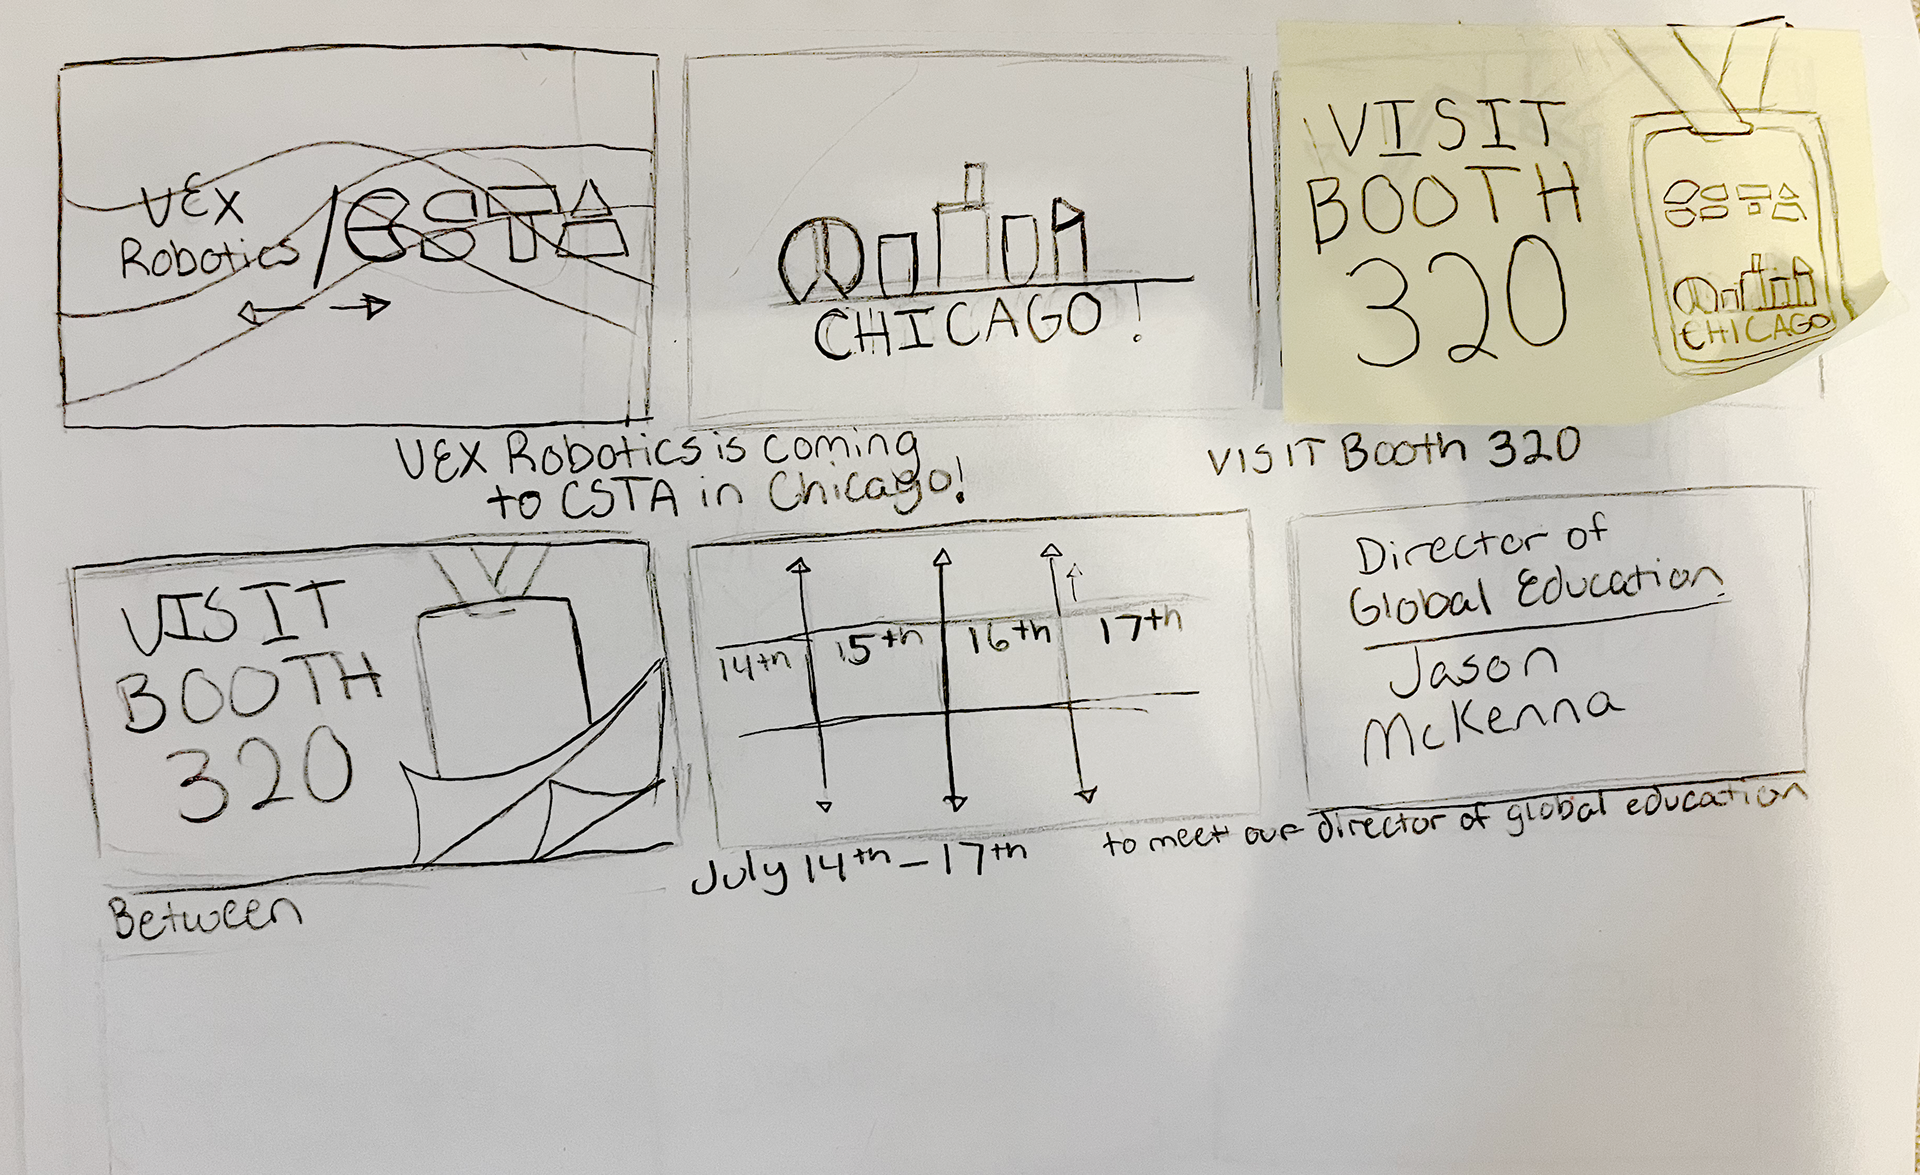 VEX
Robotics / CSTA
CHICAGO!
VISIT
BOOTH
320
CSTA
CHICAGO
VEX Robotics is coming
to CSTA in Chicago!
VISIT Booth 320
VISIT
BOOTH
320
14th 15th 16th 17th
Director of
Global Education
Jason
McKenna
Between
July 14th - 17th
to meet our director of global education